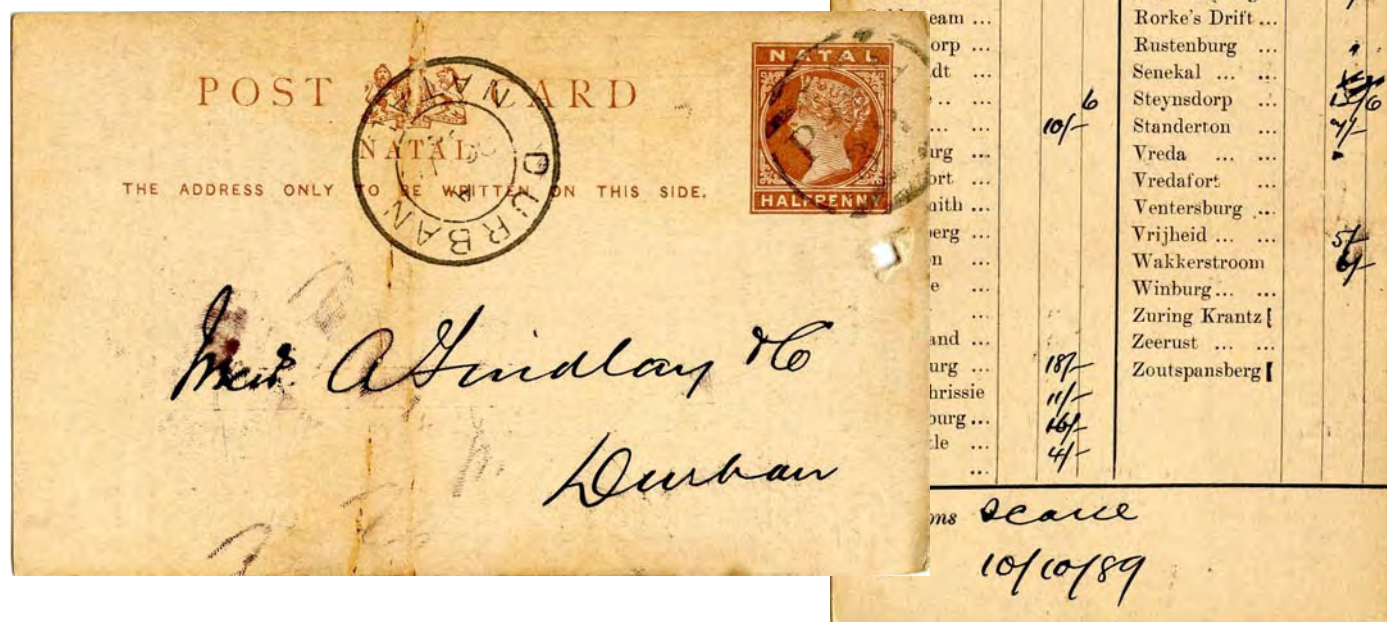 POST CARD
NATAL
THE ADDRESS ONLY TO BE WRITTEN ON THIS SIDE.
DURBAN NATAL
NATAL
HALFPENNY
Messrs. A Findlay & Co
Durban
eam ...
orp ...
dt ...
... 6
... ... 10/-
urg ...
ort ...
mith ...
berg ...
n ...
e ...
...
and ...
urg ... 18/-
hrissie 11/-
burg ... 16/-
tle ... 4/-
...
Rorke's Drift ...
Rustenburg ...
Senekal ... ...
Steynsdorp ... 15/6
Standerton ... 7/-
Vreda ... ...
Vredafort ...
Ventersburg ...
Vrijheid ... ... 5/-
Wakkerstroom 6/-
Winburg ... ...
Zuring Krantz
Zeerust ... ...
Zoutspansberg
ons scarce
10/10/89